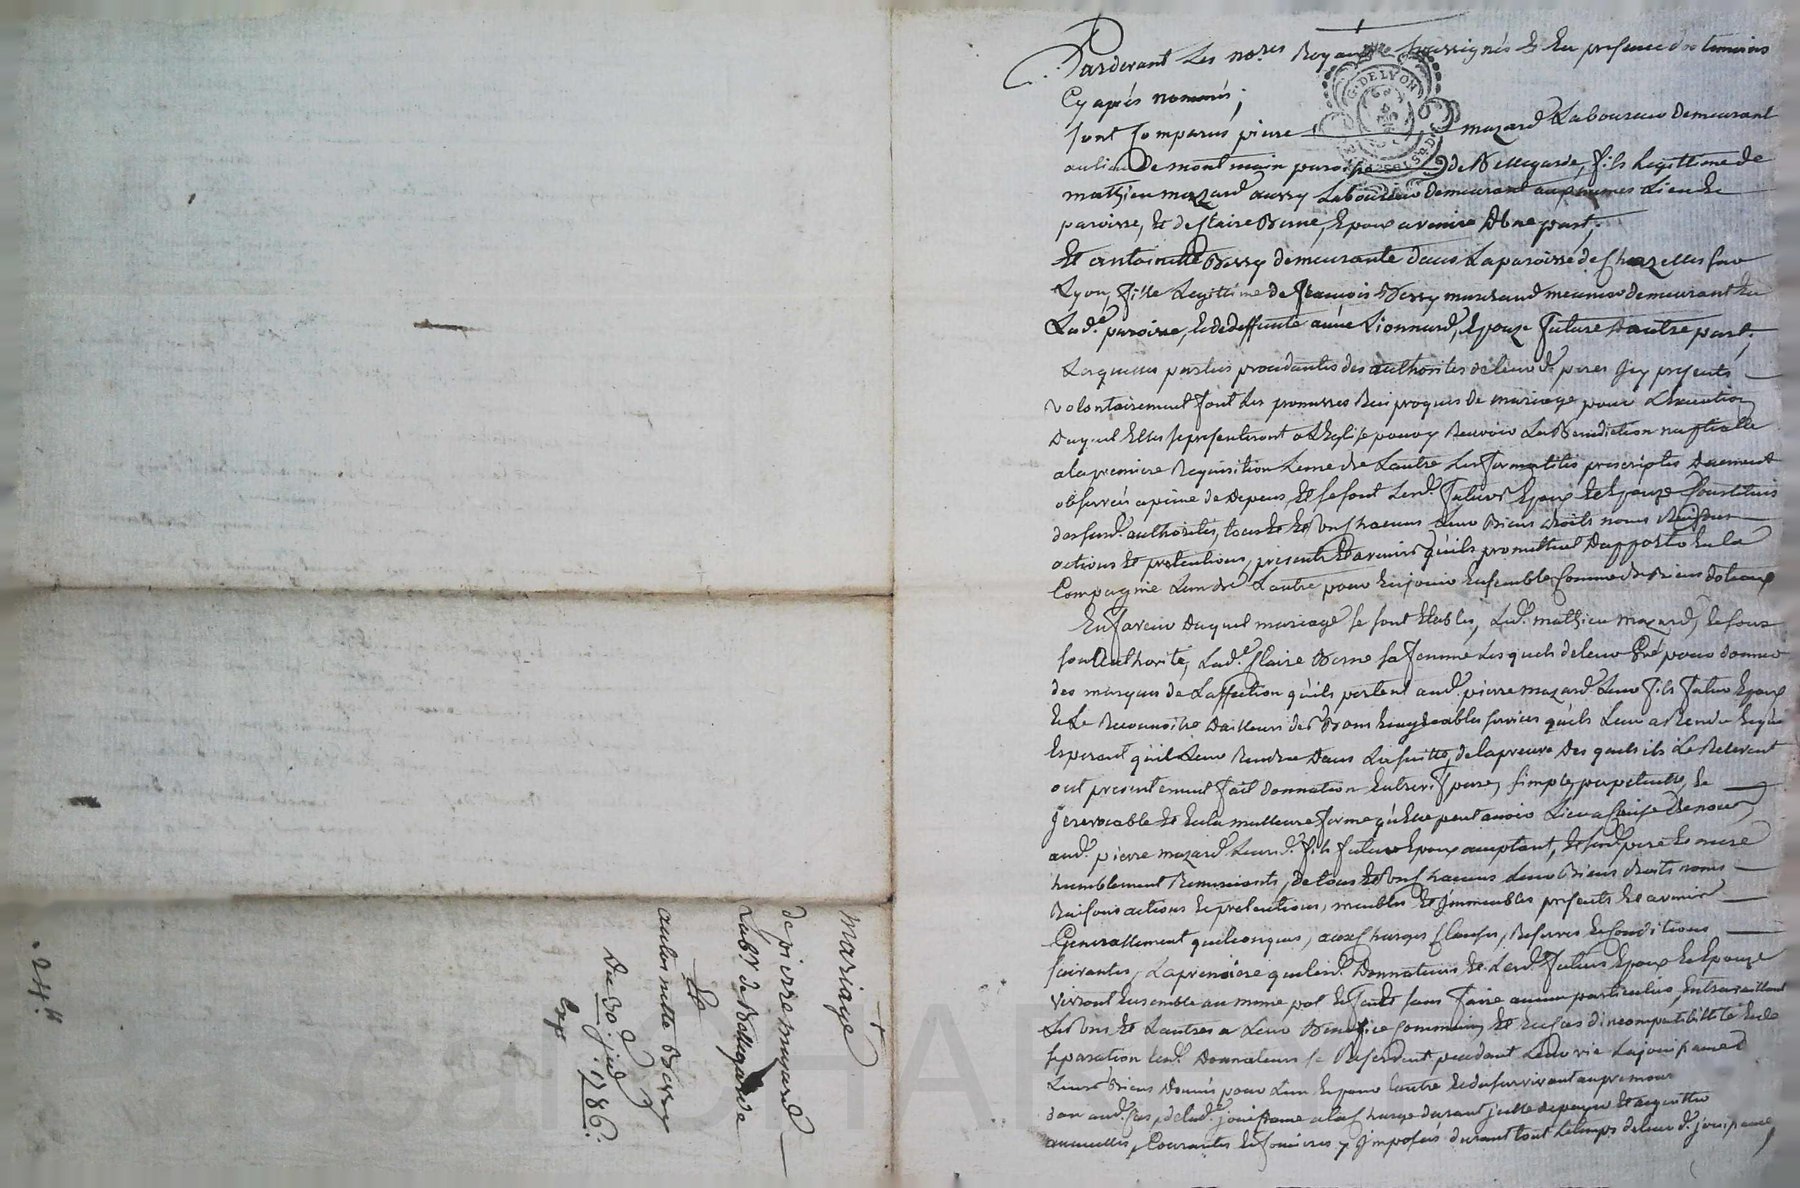 Pardevant Les no.res Royaux soussignés Et En presence des temoins
Cy aprés nommés;
sont Comparus pierre mazard Laboureur Demeurant
au lieu De montmain paroisse de Bellegarde, fils Legitime de
mathieu mazard aussy Laboureur demeurant aux mêmes Lieu Et
paroisse, Et de Claire Berne, Epoux avenir D'une part;
Et antoinette Bessy demeurante dans La paroisse de Chazelles sur
Lyon, fille Legitime de françois Bessy marchand meunier demeurant En
Lad.e paroisse, Et de deffunte anne Lionnard, Epouze future d'autre part;
Lesquelles parties procedantes des authorités de leurd. peres Icy presents
volontairement font Les promesses Reciproques de mariage pour L'execution
Duquel Elles se presenteront a L'Eglise pour y Recevoir La Benediction nuptialle
a la premiere Requisition L'une de L'autre Les formalités prescriptes Duement
observées a peine de Depens, Et se sont Lesd. futurs Epoux Et Epouze Constitués
desusd. authorités, tous Et Uns Chacuns Leurs Biens droits noms Raisons
actions Et pretentions, presents Et avenir qu'ils promettent D'apporter En la
Compagnie L'un de L'autre pour En jouir Ensemble Comme de Biens dotaux
En faveur Duquel mariage se sont Etablis, Led. mathieu mazard, Et sous
son Authorité, Lad.e Claire Berne sa femme Lesquels de leur Gré pour donner
des marques de L'affection qu'ils portent aud. pierre mazard Leur fils futur Epoux
Et Le Reconnoitre D'ailleurs des Bons Et agreables services qu'il Leur a Rendu Et qu'ils
Esperent qu'il Leur Rendra Dans La suitte, de la preuve Des quels ils Le Relevent
ont presentement fait donnation Entrevif pure, simple, perpetuelle, Et
Jrevocable Et En la meilleure forme qu'Elle peut avoir Lieu
aud. pierre mazard Leurd. fils futur Epoux acceptant, Et sesd. pere Et mere
humblement Remerciants, De tous Et Uns Chacuns Leurs Biens droits noms
Raisons actions Et pretentions, meubles Et Jmmeubles presents Et avenir
Generallement quelconques, aux Charges Clauses, Reserves Et Conditions
suivantes, La premiere que lesd. Donnateurs Et Lesd. futurs Epoux Et Epouze
vivront Ensemble au même pot Et feu Et sans faire aucun particulier, En travaillant
Les Uns Et Lautres a Leur Benefice Commun, Et En Cas d'incompatibilité Et de
separation Lesd. Donnateurs se Reservent pendant Leur vie La jouissance
Leurs Biens Donnés pour L'un Et pour l'autre Et du survivant au premour
don aud. Cas, de lad.e jouissance a la Charge durant Jcelle de payer Et acquitter
annuelles, Courantes Et foncieres y Jmposées durant tout Le temps de leurd. jouissance,
mariage
de pierre mazard
Lab.r de Bellegarde
Et
antoinette Bessy
Du 30 j. 1786.
Exp